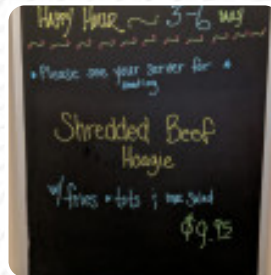 Happy Hour ~ 3-6
* Please see your server for *
Shredded Beef
Hoagie
w/ fries or tots & mac salad
$9.95